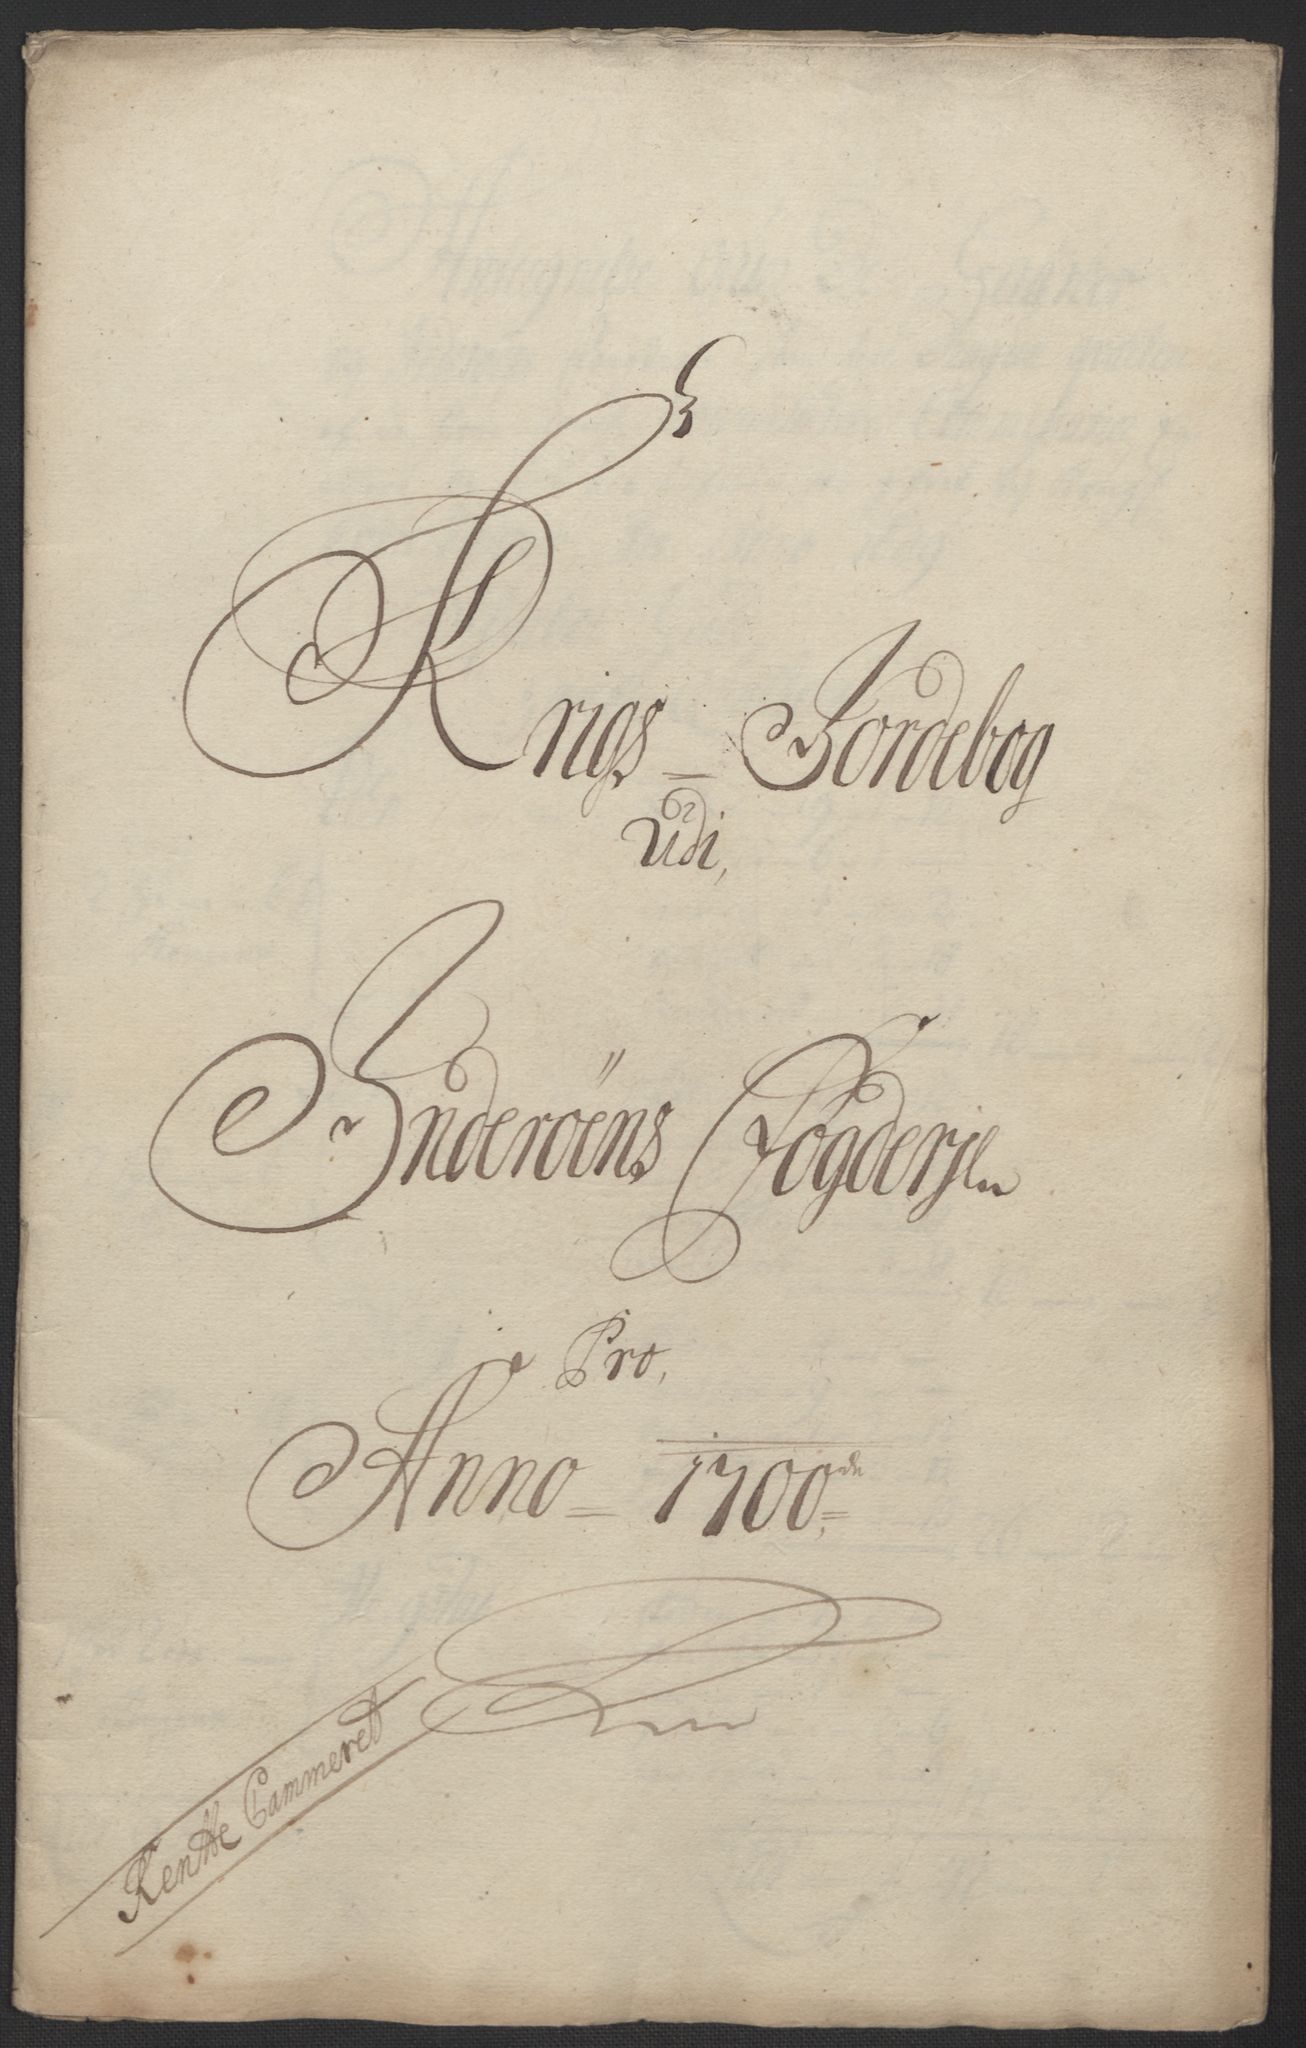 Krigs - Jordebog
Udi,
Inderöens Fogderje
Pro,
Anno - 1700de
Rentte Cammeret